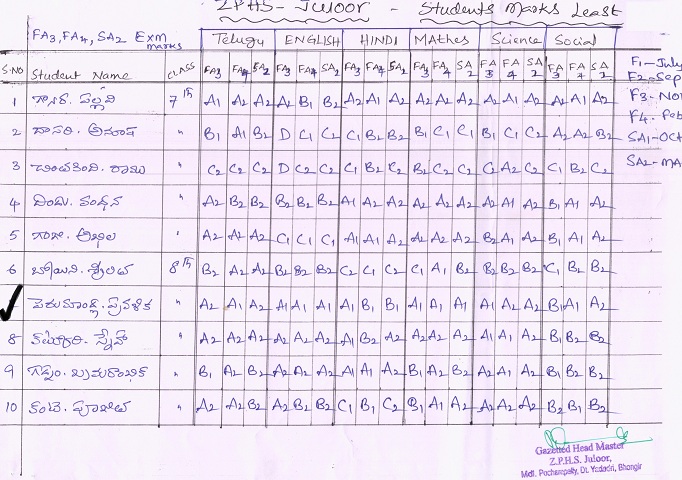 ZPHS - Juloor - Students Marks Least
FA3, FA4, SA2 Exm marks
Telugu ENGLISH HINDI MAthes Science Social
S.NO Student Name CLASS FA3 FA4 SA2 FA3 FA4 SA2 FA3 FA4 SA2 FA3 FA4 SA2 FA3 FA4 SA2 FA3 FA4 SA2
F1 - July
F2 - Sep
F3 - Nov
F4 - Feb
SA1 - Oct
SA2 - MA
1 పల్లవి 7th A1 A2 A2 A2 B1 B2 A2 A1 A2 A2 A2 A2 A2 A2 A2 A2 A1 A2
2 దాసరి. అనూష " B1 A1 B2 D C1 C2 C1 B2 B2 B1 C1 C1 B1 C1 C2 A2 A2 B2
3 రాజు " C2 C2 C2 D C2 C2 C1 B2 C2 B2 C2 C2 C2 A2 C2 C1 B2 C2
4 A2 B2 B2 B2 B2 B2 A1 A2 A2 A2 A2 A2 A2 A1 A2 B1 A1 A2
5 అఖిల ' A2 A2 A2 C1 C1 C1 A1 A1 A2 A2 A2 A2 B2 A1 A2 B1 A1 A2
6 8th B2 A2 A2 B2 B2 B2 C2 C1 C2 C1 A1 B2 B2 B2 B2 C1 B2 B2
" A2 A1 A2 A1 A1 A1 A1 B1 B1 A1 A1 A1 A1 A2 A2 B1 A1 A2
8 " A2 A2 A2 A2 A2 A2 A1 B2 A2 A2 A2 A2 A1 A1 A2 B2 B2 B2
9 " B1 A2 B2 A2 A2 A2 A1 A1 A2 B1 A2 B2 A2 A1 A2 B1 B2 B2
10 " A2 A2 B2 A2 B2 B2 C1 B1 C2 B1 A1 A2 A2 A2 A2 B2 B1 B2
Gazetted Head Master
Z.P.H.S. Juloor,
Mdl. Pochampally, Dt. Yadadri, Bhongir